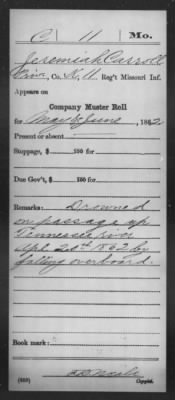 C | 11 | Mo.
Jeremiah Carroll
Priv., Co. K, 11 Reg't Missouri Inf.
Appears on
Company Muster Roll
for May & June, 1862
Present or absent —
Stoppage, $ 100 for
Due Gov't, $ 100 for
Remarks: Drowned
on passage up
Tennessee river
Apl 20th 1862 by
falling overboard.
Book mark:
Copyist.